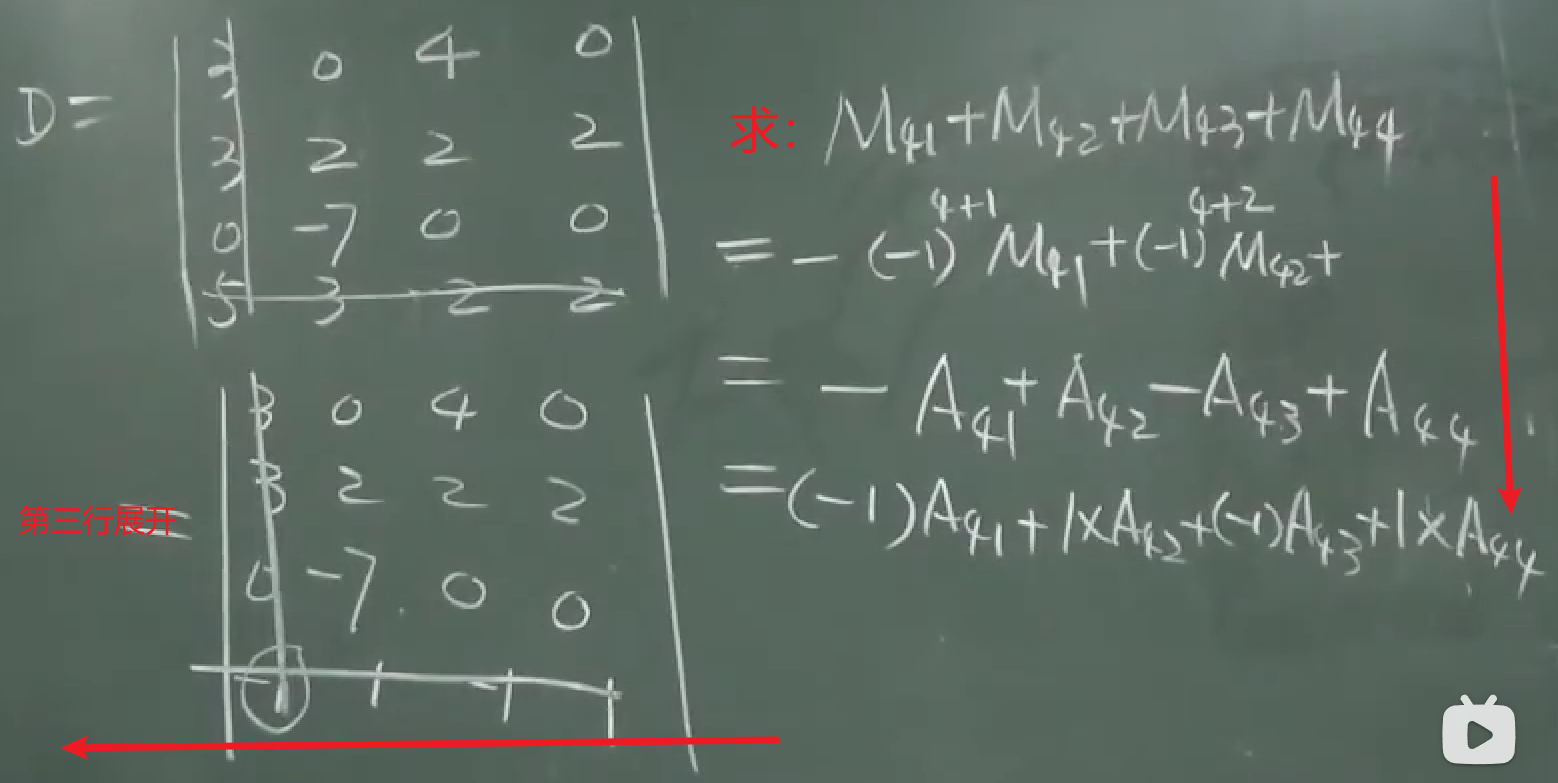 D= | 3 0 4 0 |
| 3 2 2 2 |
| 0 -7 0 0 |
| 5 3 -2 2 |
求: M₄₁+M₄₂+M₄₃+M₄₄
= - (-1)⁴⁺¹ M₄₁+(-1)⁴⁺² M₄₂+
= - A₄₁+A₄₂-A₄₃+A₄₄
=(-1)A₄₁+1×A₄₂+(-1)A₄₃+1×A₄₄
第三行展开 = | 3 0 4 0 |
| 3 2 2 2 |
| 0 -7 0 0 |
| -1 1 -1 1 |